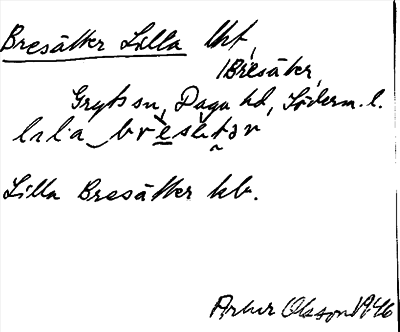 Bresätter Lilla lht,
/Bresäter,
Gryts sn, Daga hd, Söderm. l.
lıla brèsètər
Lilla Bresätter kb.
Artur Olsson 1946